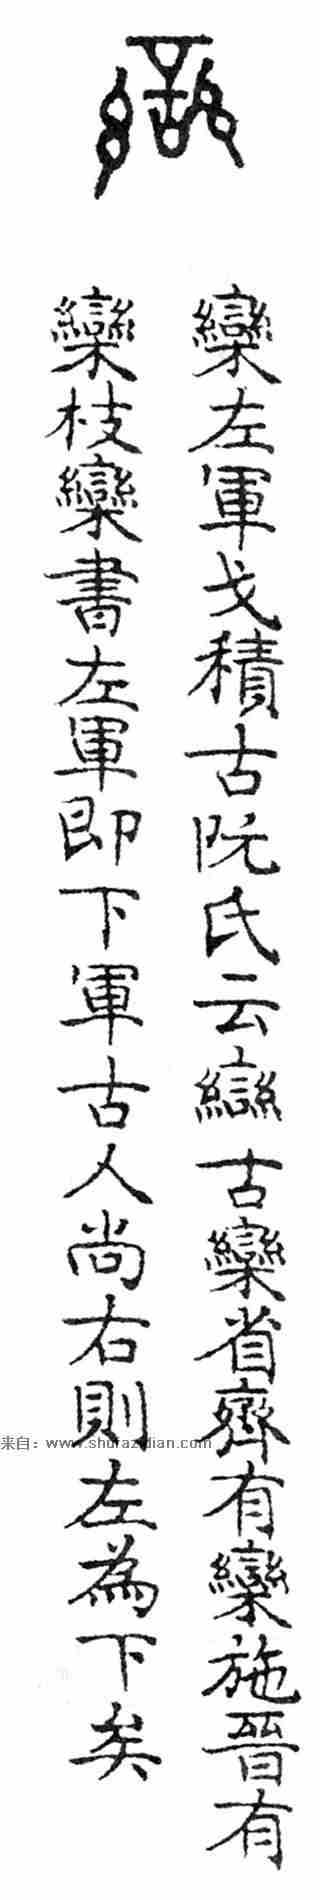 䜌
欒左軍戈積古阮氏云䜌古欒省齊有欒施晉有
欒枝欒書左軍即下軍古人尚右則左為下矣
来自：www.shufazidian.com